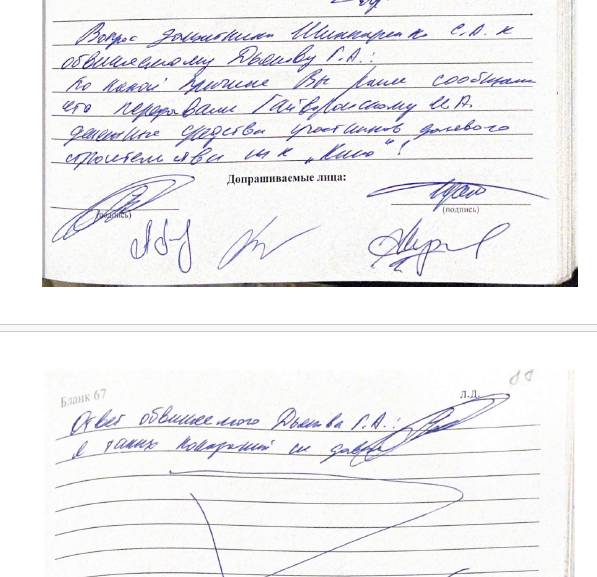 Вопрос защитника Шинкаренко С.А. к
обвиняемому Дьякову Г.А.:
По какой причине Вы ранее сообщали
что передавали Гайворонскому И.А.
денежные средства участников долевого
строительства "Кино"?
Допрашиваемые лица:
(подпись) (подпись)
Бланк 67 Л.Д.
Ответ обвиняемого Дьякова Г.А.:
я таких показаний не давал